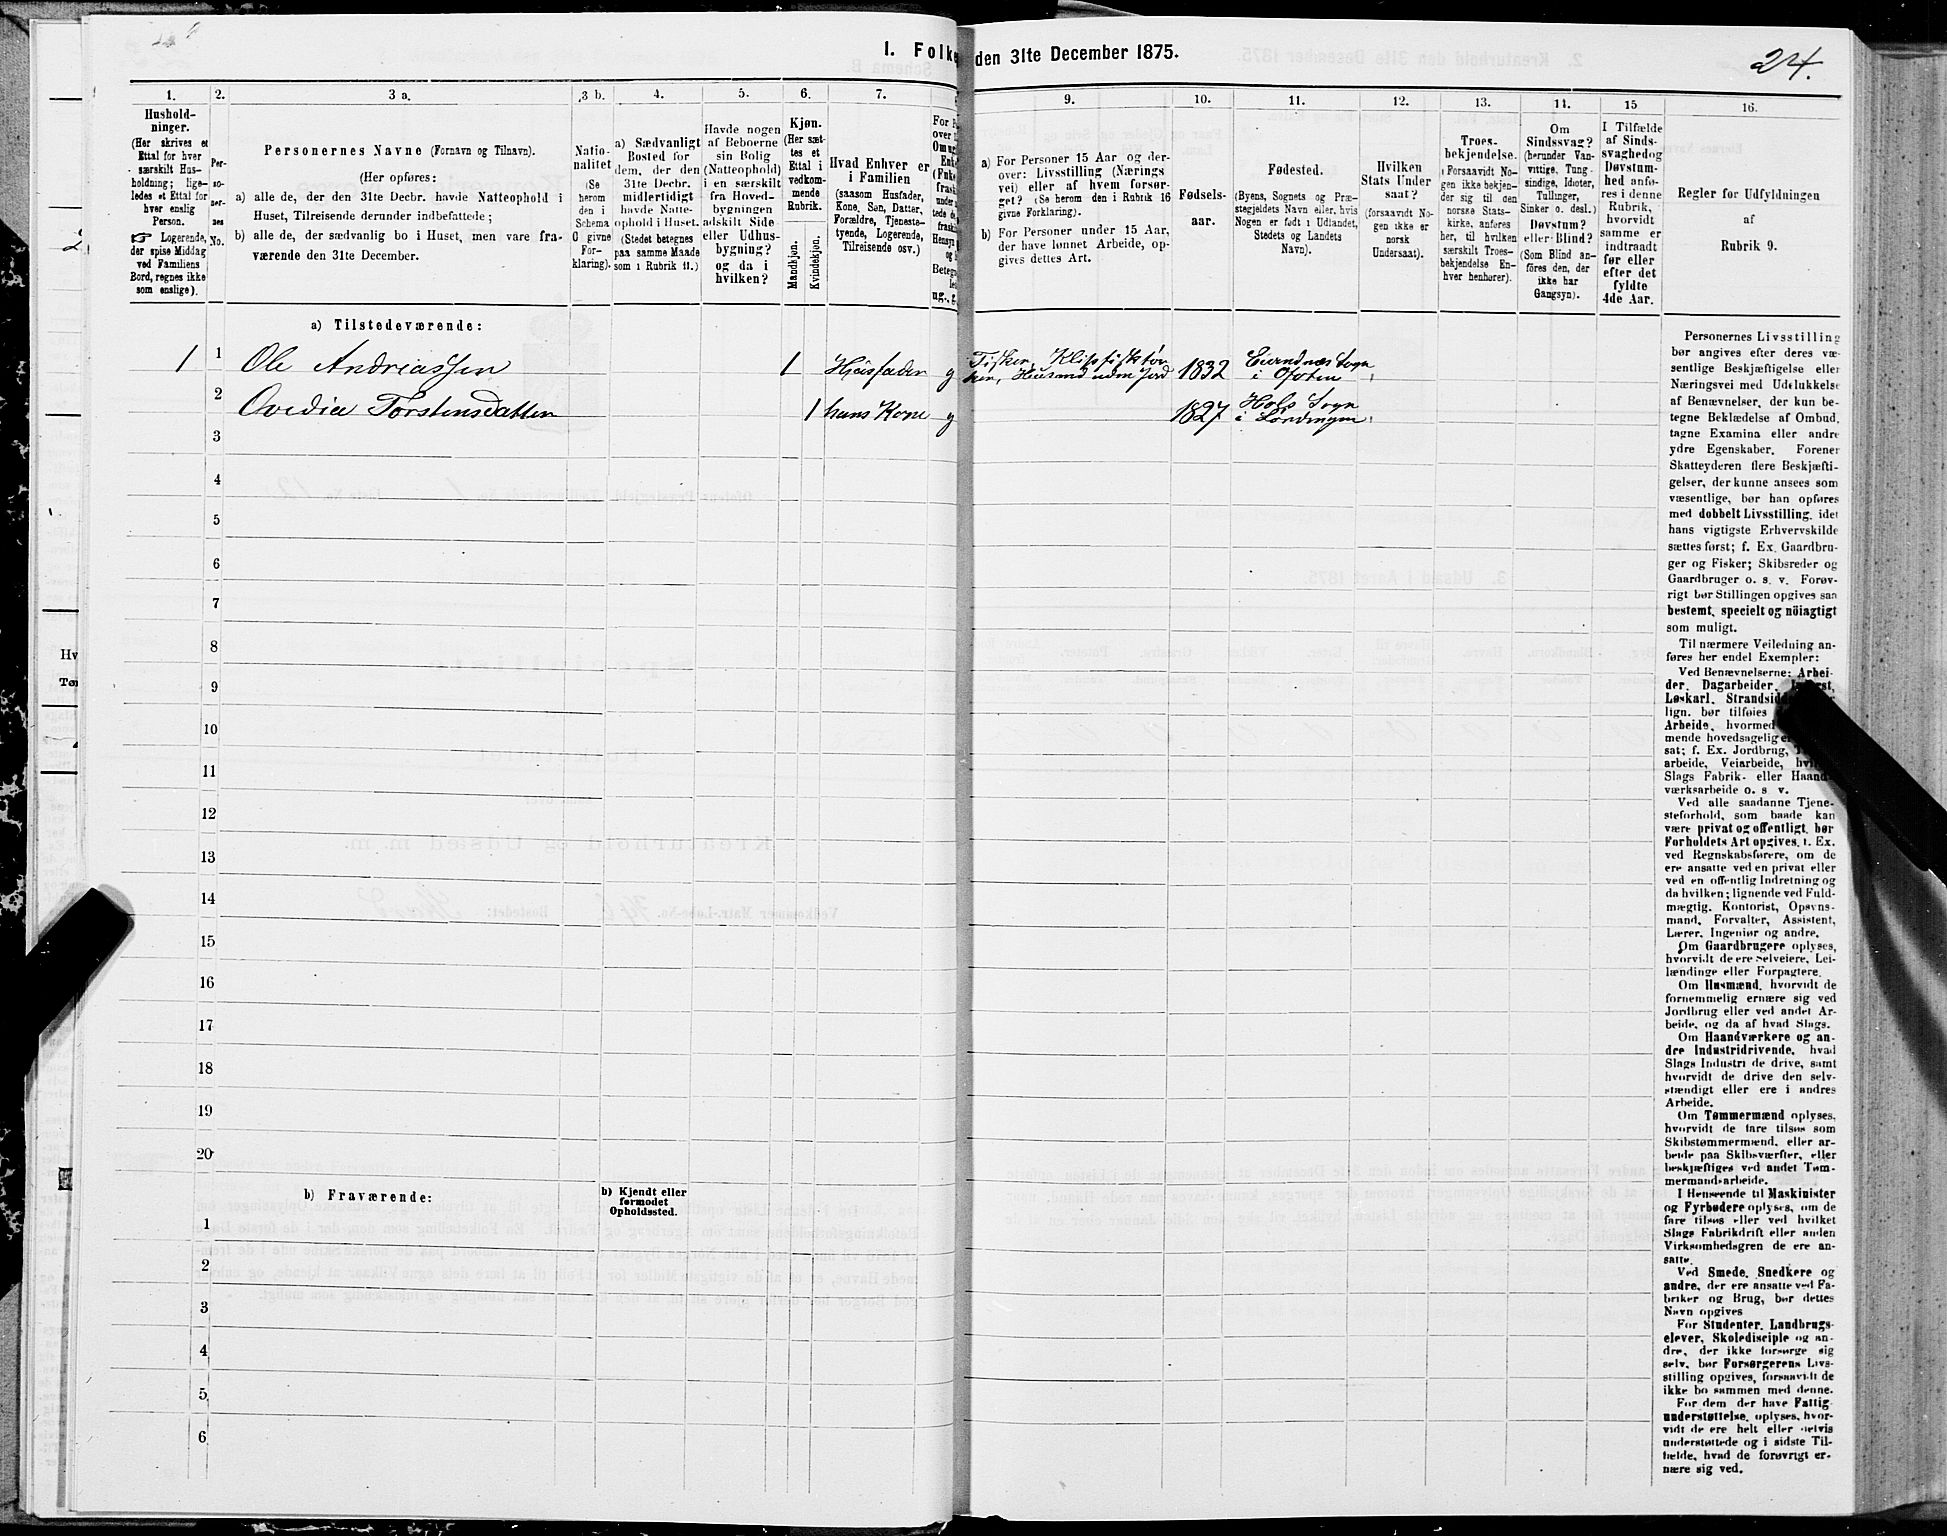 1. Folke
den 31te December 1875.
24.
1.
2.
3 a.
3 b.
4.
5.
6.
7.
9.
10.
11.
12.
13.
14.
15
16.
Hushold-
ninger.
(Her skrives et
Ettal for hver
særskilt Hus-
holdning; lige-
ledes et Ettal for
hver enslig
Person.
☞ Logerende,
der spise Middag
ved Familiens
Bord, regnes ikke
som enslige).
Per-
so-
ner-
nes
No.
Personernes Navne (Fornavn og Tilnavn).
(Her opføres:
a) alle de, der den 31te Decbr. havde Natteophold i
Huset, Tilreisende derunder indbefattede;
b) alle de, der sædvanlig bo i Huset, men vare fra-
værende den 31te December.
Natio-
nalitet
(Se
herom
den i
Schema
O givne
For-
klaring).
a) Sædvanligt
Bosted for
dem, der den
31te Decbr.
midlertidigt
havde Natte-
ophold i Huset.
(Stedet betegnes
paa samme Maade
som i Rubrik 11.)
Havde nogen
af Beboerne
sin Bolig
(Natteophold)
i en særskilt
fra Hoved-
bygningen
adskilt Side-
eller Udhus-
bygning?
og da i
hvilken?
Kjøn.
(Her sæt-
tes et
Ettal i
vedkom-
mende
Rubrik.
Mandkjøn.
Kvindekjøn.
Hvad Enhver er
i Familien
(saasom Husfader,
Kone, Søn, Datter,
Forældre, Tjeneste-
tyende, Logerende,
Tilreisende osv.)
a) For Personer 15 Aar og der-
over: Livsstilling (Nærings
vei) eller af hvem forsør-
get? (Se herom den i Rubrik 16
givne Forklaring).
b) For Personer under 15 Aar,
der have lønnet Arbeide, op-
gives dettes Art.
Fødsels-
aar.
Fødested.
(Byens, Sognets og Præ-
stegjeldets Navn eller, hvis
Nogen er født i Udlandet,
Stedets og Landets
Navn).
Hvilken
Stats Under
saat?
(forsaavidt No-
gen ikke er
norsk
Undersaat).
Troes-
bekjendelse.
(Forsaavidt No-
gen ikke bekjen-
der sig til den
norske Stats-
kirke, anføres
her, til hvilken
særskilt Troes-
bekjendelse En-
hver henhører).
Om
Sindssvag?
(herunder Van-
vittige, Tung-
sindige, Idioter,
Tullinger,
Sinker o. desl.)
Døvstum?
eller Blind?
(Som Blind an-
føres den, der
ikke har
Gangsyn).
I Tilfælde
af Sinds-
svaghed og
Døvstum-
hed anfø-
res i denne
Rubrik,
hvorvidt
samme er
indtraadt
før eller
efter det
fyldte
4de Aar.
Regler for Udfyldningen
af
Rubrik 9.
a) Tilstedeværende:
1 1 Ole Andriassen 1 Husfader g Fisker, 1832 i Ofoten
2 Ovedia Torstensdatter 1 hans Kone g 1827 Hols Sogn
3
4
5
6
7
8
9
10
11
12
13
14
15
16
17
18
19
20
b) Fraværende:
b) Kjendt eller
formodet
Opholdssted.
1
2
3
4
5
6
Personernes Livsstilling
bør angives efter deres væ-
sentlige Beskjæftigelse eller
Næringsvei med Udelukkelse
af Benævnelser, der kun be-
tegne Beklædelse af Ombud,
tagne Examina eller andre
ydre Egenskaber. Forener
Skatteyderen flere Beskjæfti-
gelser, der kunne ansees som
væsentlige, bør han opføres
med dobbelt Livsstilling, idet
hans vigtigste Erhvervskilde
sættes først; f. Ex. Gaardbru-
ger og Fisker; Skibsreder og
Gaardbruger o. s. v. Forøv-
rigt bør Stillingen opgives saa
bestemt, specielt og nöiagtigt
som muligt.
Til nærmere Veiledning an-
føres her endel Exempler:
Ved Benævnelserne: Arbei-
der, Dagarbeider,
Løskarl, Strandsid
lign. bør tilføies
Arbeide, hvormed
mende hovedsagelig er
sat; f. Ex. Jordbrug,
arbeide, Veiarbeide,
Slags Fabrik- eller Haand-
værksarbeide o. s. v.
Ved alle saadanne Tjene-
steforhold, som baade kan
være privat og offentligt, bør
Forholdets Art opgives, f. Ex.
ved Regnskabsførere, om de
ere ansatte ved en privat eller
ved en offentlig Indretning og
da hvilken; lignende ved Fuld-
mægtig, Kontorist, Opsyns-
mand, Forvalter, Assistent,
Lærer, Ingeniør og andre.
Om Gaardbrugere oplyses,
hvorvidt de ere Selveiere, Lei-
lændinge eller Forpagtere.
Om Husmænd, hvorvidt de
fornemmelig ernære sig ved
Jordbrug eller ved andet Ar-
beide, og da af hvad Slags.
Om Haandværkere og an-
dre Industridrivende, hvad
Slags Industri de drive, samt
hvorvidt de drive den selv-
stændigt eller ere i andres
Arbeide.
Om Tømmermænd oplyses,
hvorvidt de fare tilsøs som
Skibstømmermænd, eller ar-
beide paa Skibsværfter, eller
beskjæftiges ved andet Tøm-
mermandsarbeide.
I Henseende til Maskinister
og Fyrbødere oplyses, om de
fare tilsøs eller ved hvilket
Slags Fabrikdrift eller anden
Virksomhedsgren de ere an-
satte.
Ved Smede, Snedkere og
andre, der ere ansatte ved Fa-
briker og Brug, bør dettes
Navn opgives
For Studenter, Landbrugs-
elever, Skoledisciple og an-
dre, der ikke forsørge sig
selv, bør Forsørgerens Livs-
stilling opgives, forsaavidt de
ikke bo sammen med denne.
For dem der have Fattig-
understøttelse, oplyses, hvor-
vidt de ere helt eller delvis
understøttede og i sidste Til-
fælde, hvad de forøvrigt er-
nære sig ved.